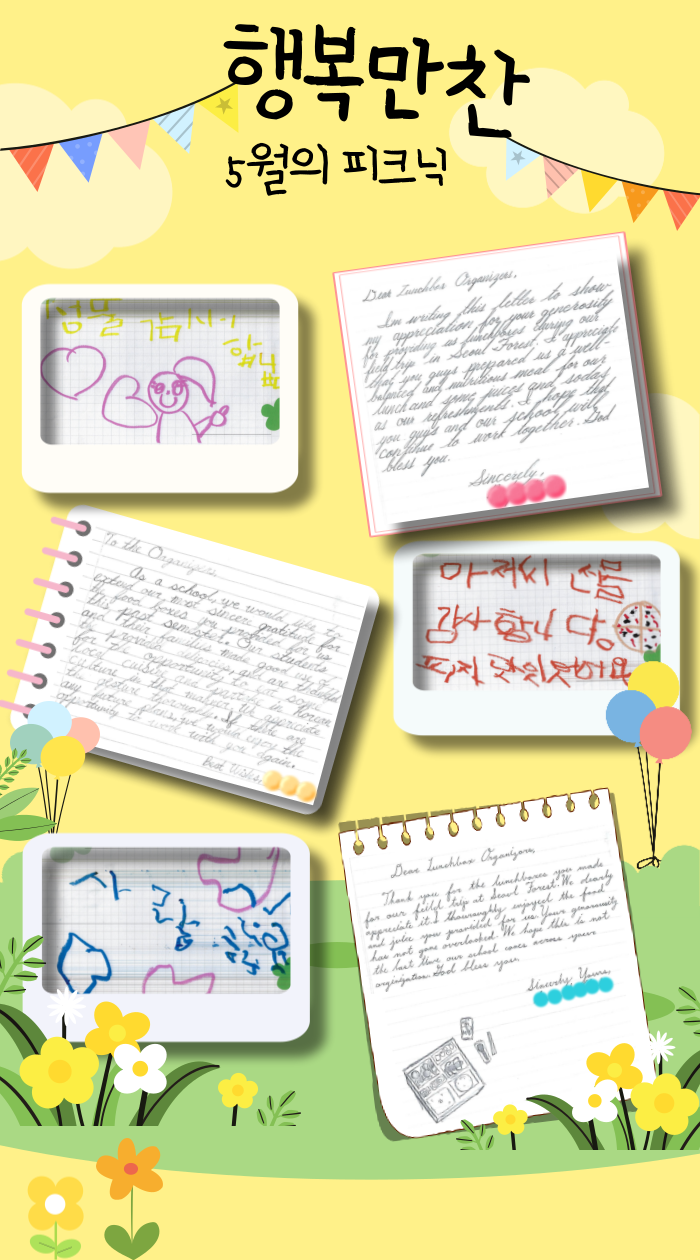 행복만찬
5월의 피크닉
선물 감사
합니
Dear Lunchbox Organizers,
I'm writing this letter to show
my appreciation for your generosity
for providing us lunchboxes during our
field trip in Seoul Forest. I appreciate
that you guys prepared us a well-
balanced and nutritious meal for our
lunch and some juices and sodas
as our refreshments. I hope that
you guys and our school will
continue to work together. God
bless you.
Sincerely,
To the Organizers,
As a school, we would like to
extend our most sincere gratitude for
the food boxes you provided for us
this past semester. Our students
and their families made good use of
the provided delicacies, and are thankful
for the opportunity to eat some
lovely cuisine and partake in Korean
culture in that manner. We appreciate
the gesture thoroughly. If there are
any future plans, we would enjoy the
opportunity to work with you again.
Best Wishes,
아저씨 선물
감사합니당
피자 맛있었어요
사
Dear Lunchbox Organizers,
Thank you for the lunchboxes you made
for our feild trip at Seoul Forest. We dearly
appreciate it. I thouroughly enjoyed the food
and juice you provided for us. Your generousity
has not gone overlooked. We hope this is not
the last time our school comes across your
orginization. God bless you.
Sincerely Yours,